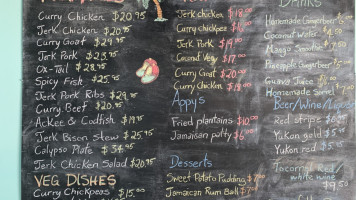 Curry Chicken $20.95
Jerk Chicken $20.95
Curry Goat $29.95
Jerk Pork $23.95
Ox-Tail $28.95
Spicy Fish $25.95
Jerk Pork Ribs $29.95
Curry Beef $20.95
Ackee & Codfish $19.95
Jerk Bison Stew $25.95
Calypso Plate $34.95
Jerk Chicken Salad $20.95
VEG DISHES
Curry Chickpeas $15.00
Jerk chicken $18.00
Curry chickpea
Jerk Pork
Coconut Veg $17.00
Curry Goat
Curry chicken $18.00
Appy's
Fried plantains $10.00
Jamaican patty $6.00
Desserts
Sweet Potato Pudding
Jamaican Rum Ball
Drinks
Homemade Gingerbeer
Coconut Water
Mango Smoothie
Pineapple Gingerbeer
Guava Juice
Homemade Sorrel
Beer/Wine/Liquor
Red stripe
Yukon gold
Yukon red
white wine
$9.50